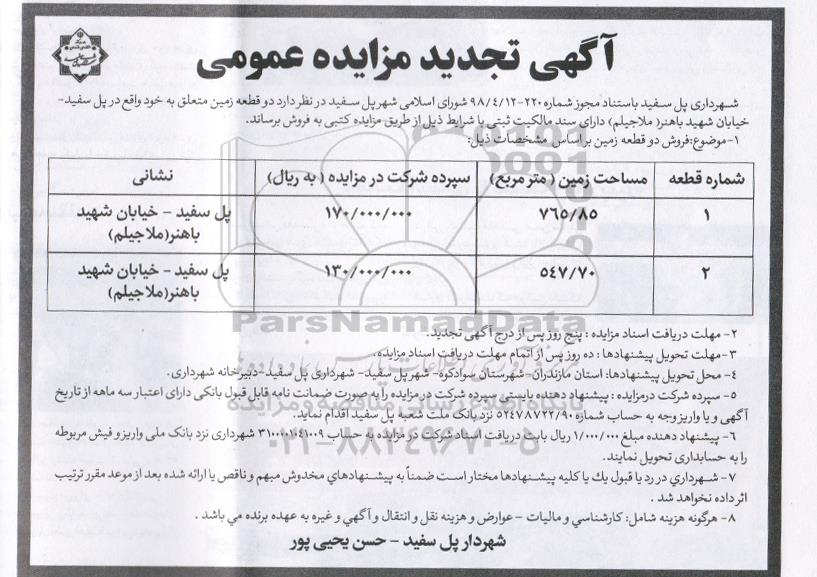 آگهی تجدید مزایده عمومی
شهرداری پل سفید باستناد مجوز شماره ۲۲۰-۹۸/۴/۱۲ شورای اسلامی شهر پل سفید در نظر دارد دو قطعه زمین متعلق به خود واقع در پل سفید-
خیابان شهید باهنر( ملاجیلم) دارای سند مالکیت ثبتی با شرایط ذیل از طریق مزایده کتبی به فروش برساند.
۱-موضوع:فروش دو قطعه زمین بر اساس مشخصات ذیل:
شماره قطعه | مساحت زمین ( متر مربع) | سپرده شرکت در مزایده ( به ریال) | نشانی
۱ | ۷۶۵/۸۵ | ۱۷۰/۰۰۰/۰۰۰ | پل سفید - خیابان شهید
باهنر(ملاجیلم)
۲ | ۵۴۷/۷۰ | ۱۳۰/۰۰۰/۰۰۰ | پل سفید - خیابان شهید
باهنر(ملاجیلم)
ParsNamadData
۲- مهلت دریافت اسناد مزایده : پنج روز پس از درج آگهی تجدید.
۳-مهلت تحویل پیشنهادها : ده روز پس از اتمام مهلت دریافت اسناد مزایده.
۴- محل تحویل پیشنهادها: استان مازندران- شهرستان سوادکوه- شهر پل سفید- شهرداری پل سفید-دبیرخانه شهرداری.
۵- سپرده شرکت درمزایده : پیشنهاد دهنده بایستی سپرده شرکت در مزایده را به صورت ضمانت نامه قابل قبول بانکی دارای اعتبار سه ماهه از تاریخ
آگهی و یا واریز وجه به حساب شماره ۵۲۴۷۸۷۲۲/۹۰ نزد بانک ملت شعبه پل سفید اقدام نماید.
۶- پیشنهاد دهنده مبلغ ۱/۰۰۰/۰۰۰ ریال بابت دریافت اسناد شرکت در مزایده به حساب ۳۱۰۰۰۰۱۴۱۰۰۹ شهرداری نزد بانک ملی واریز و فیش مربوطه
را به حسابداری تحویل نمایند.
۰۲۱-۸۸۳۴۹۶۷۰-۵
۷- شهرداري در رد یا قبول یك یا کلیه پیشنهادها مختار است ضمناً به پیشنهادهاي مخدوش مبهم و ناقص یا ارائه شده بعد از موعد مقرر ترتیب
اثر داده نخواهد شد .
۸- هرگونه هزینه شامل: کارشناسي و مالیات - عوارض و هزینه نقل و انتقال و آگهي و غیره به عهده برنده مي باشد .
شهردار پل سفید - حسن یحیی پور